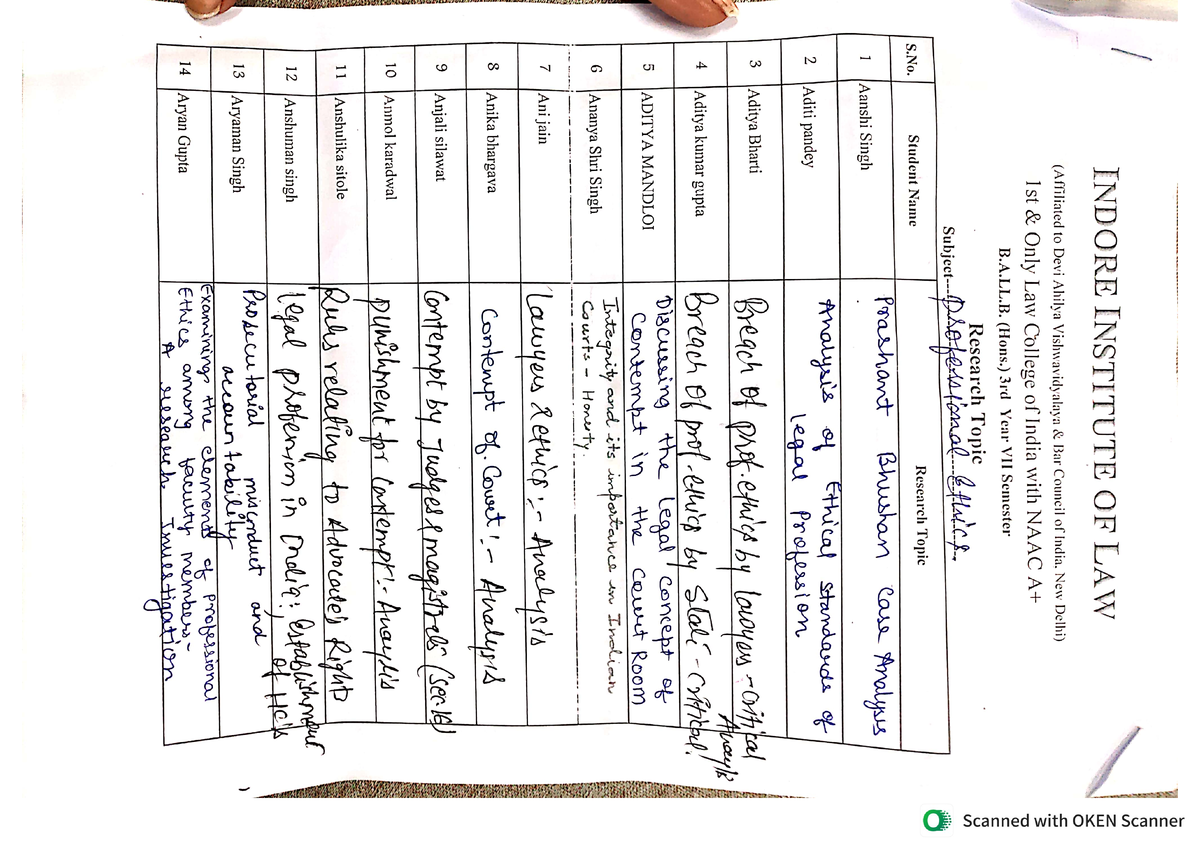 INDORE INSTITUTE OF LAW
(Affiliated to Devi Ahilya Vishwavidyalaya & Bar Council of India, New Delhi)
1st & Only Law College of India with NAAC A+
B.A.LL.B. (Hons.) 3rd Year VII Semester
Research Topic
Subject....Professional...Ethics.
S.No. Student Name Research Topic
1 Aanshi Singh Prashant Bhushan Case Analysis
2 Aditi pandey Analysis of Ethical standards of
legal Profession
3 Aditya Bharti Breach of prof. ethics by lawyers - critical
4 Aditya kumar gupta Breach of prof. ethics by - critical.
5 ADITYA MANDLOI Discussing the legal concept of
Contempt in the Court Room
6 Ananya Shri Singh Integrity and its importance in Indian
Courts - Honesty.
7 Ani jain Lawyers & ethics:- Analysis
8 Anika bhargava Contempt of Court!- Analysis
9 Anjali silawat Contempt by Judges & (sec 16)
10 Anmol karadwal punishment for Contempt:- Anaylsis
11 Anshulika sitole Rules relating to Advocates Rights
12 Anshuman singh legal profession in India: Establishment
of HC's
13 Aryaman Singh Prosecutorial misconduct and
accountability
14 Aryan Gupta Examinings the elements of professional
Ethics among faculty members -
A research Investigation
Scanned with OKEN Scanner